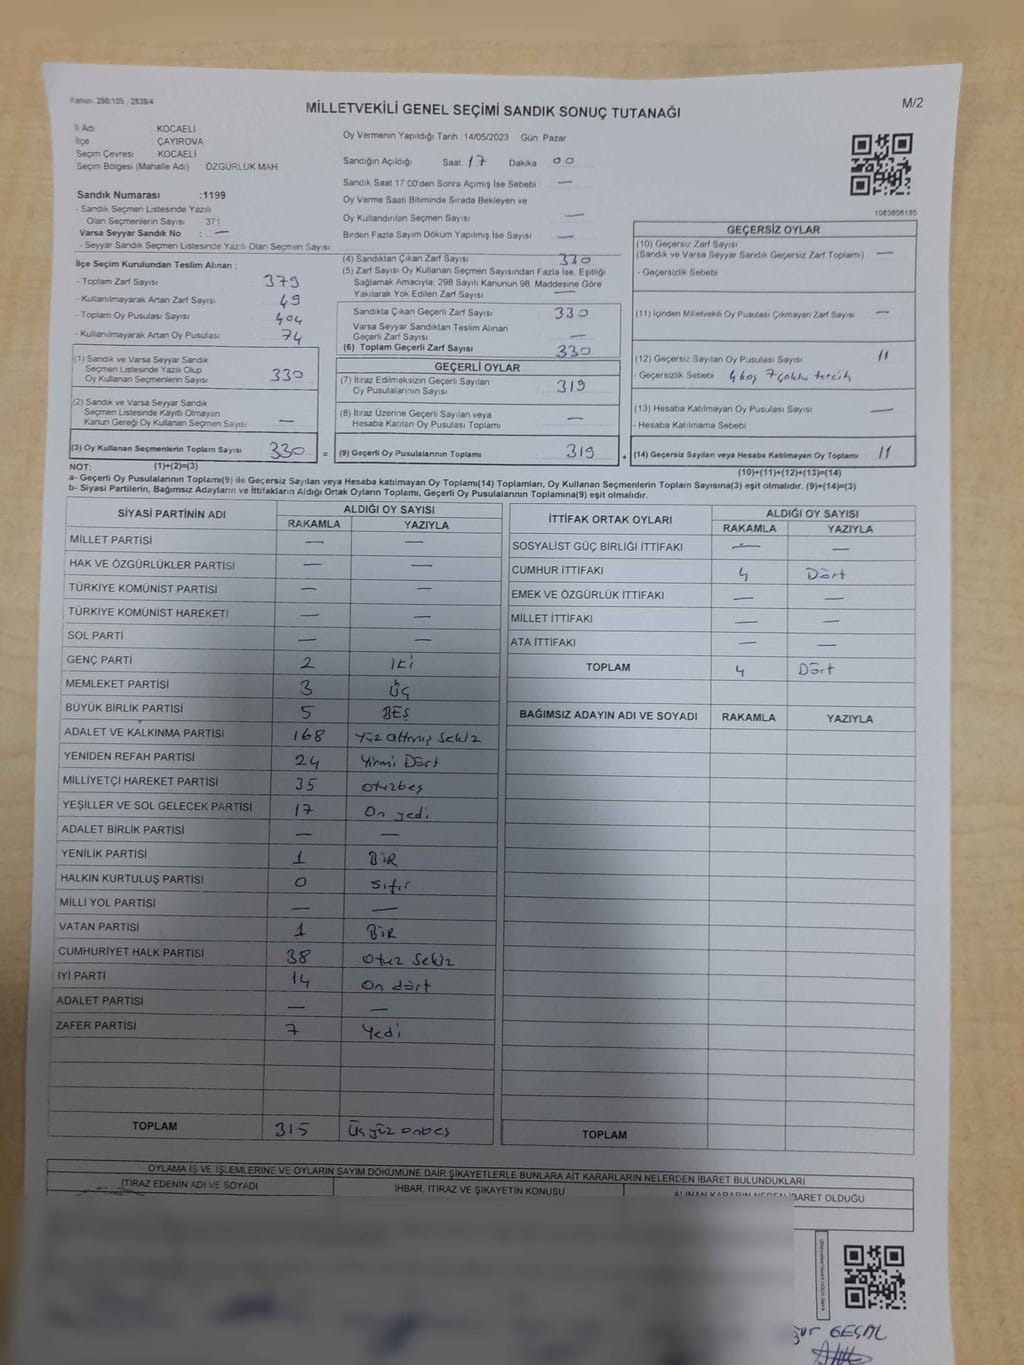 Kanun: 298/105 , 2839/4
MİLLETVEKİLİ GENEL SEÇİMİ SANDIK SONUÇ TUTANAĞI
M/2
İl Adı KOCAELİ
İlçe ÇAYIROVA
Seçim Çevresi KOCAELİ
Seçim Bölgesi (Mahalle Adı) ÖZGÜRLÜK MAH.
Sandık Numarası :1199
- Sandık Seçmen Listesinde Yazılı
Olan Seçmenlerin Sayısı 371
Varsa Seyyar Sandık No : —
- Seyyar Sandık Seçmen Listesinde Yazılı Olan Seçmen Sayısı:
Oy Vermenin Yapıldığı Tarih :14/05/2023 Gün: Pazar
Sandığın Açıldığı Saat 17 Dakika 00
Sandık Saat 17:00'den Sonra Açımış İse Sebebi —
Oy Verme Saati Bitiminde Sırada Bekleyen ve
Oy Kullandırılan Seçmen Sayısı —
Birden Fazla Sayım Döküm Yapılmış İse Sayısı —
1083808185
İlçe Seçim Kurulundan Teslim Alınan :
- Toplam Zarf Sayısı 379
- Kullanılmayarak Artan Zarf Sayısı 49
- Toplam Oy Pusulası Sayısı 404
- Kullanılmayarak Artan Oy Pusulası 74
(1) Sandık ve Varsa Seyyar Sandık
Seçmen Listesinde Yazılı Olup
Oy Kullanan Seçmenlerin Sayısı 330
(2) Sandık ve Varsa Seyyar Sandık
Seçmen Listesinde Kayıtlı Olmayan
Kanun Gereği Oy Kullanan Seçmen Sayısı —
(3) Oy Kullanan Seçmenlerin Toplam Sayısı 330 =
(4) Sandıktan Çıkan Zarf Sayısı 330
(5) Zarf Sayısı Oy Kullanan Seçmen Sayısından Fazla İse, Eşitliği
Sağlamak Amacıyla, 298 Sayılı Kanunun 98. Maddesine Göre
Yakılarak Yok Edilen Zarf Sayısı —
Sandıkta Çıkan Geçerli Zarf Sayısı 330
Varsa Seyyar Sandıktan Teslim Alınan
Geçerli Zarf Sayısı —
(6) Toplam Geçerli Zarf Sayısı 330
GEÇERLİ OYLAR
(7) İtiraz Edilmeksizin Geçerli Sayılan
Oy Pusulalarının Sayısı 319
(8) İtiraz Üzerine Geçerli Sayılan veya
Hesaba Katılan Oy Pusulası Toplamı —
(9) Geçerli Oy Pusulalarının Toplamı 319 +
GEÇERSİZ OYLAR
(10) Geçersiz Zarf Sayısı
(Sandık ve Varsa Seyyar Sandık Geçersiz Zarf Toplamı) —
- Geçersizlik Sebebi
(11) İçinden Milletvekili Oy Pusulası Çıkmayan Zarf Sayısı —
(12) Geçersiz Sayılan Oy Pusulası Sayısı 11
- Geçersizlik Sebebi 4 boş 7 çoklu tercih
(13) Hesaba Katılmayan Oy Pusulası Sayısı —
- Hesaba Katılmama Sebebi
(14) Geçersiz Sayılan veya Hesaba Katılmayan Oy Toplamı 11
NOT: (1)+(2)=(3)
(10)+(11)+(12)+(13)=(14)
a- Geçerli Oy Pusulalarının Toplamı(9) ile Geçersiz Sayılan veya Hesaba Katılmayan Oy Toplamı(14) Toplamları, Oy Kullanan Seçmenlerin Toplam Sayısına(3) eşit olmalıdır. (9)+(14)=(3)
b- Siyasi Partilerin, Bağımsız Adayların ve İttifakların Aldığı Ortak Oyların Toplamı, Geçerli Oy Pusulalarının Toplamına(9) eşit olmalıdır.
SİYASİ PARTİNİN ADI ALDIĞI OY SAYISI
RAKAMLA YAZIYLA
MİLLET PARTİSİ — —
HAK VE ÖZGÜRLÜKLER PARTİSİ — —
TÜRKİYE KOMÜNİST PARTİSİ — —
TÜRKİYE KOMÜNİST HAREKETİ — —
SOL PARTİ — —
GENÇ PARTİ 2 İki
MEMLEKET PARTİSİ 3 Üç
BÜYÜK BİRLİK PARTİSİ 5 BEŞ
ADALET VE KALKINMA PARTİSİ 168 Yüz altmış sekiz
YENİDEN REFAH PARTİSİ 24 Yirmi Dört
MİLLİYETÇİ HAREKET PARTİSİ 35 otuzbeş
YEŞİLLER VE SOL GELECEK PARTİSİ 17 On yedi
ADALET BİRLİK PARTİSİ — —
YENİLİK PARTİSİ 1 BİR
HALKIN KURTULUŞ PARTİSİ 0 sıfır
MİLLİ YOL PARTİSİ — —
VATAN PARTİSİ 1 BİR
CUMHURİYET HALK PARTİSİ 38 otuz sekiz
İYİ PARTİ 14 On dört
ADALET PARTİSİ — —
ZAFER PARTİSİ 7 Yedi
TOPLAM 315 Üçyüz onbeş
İTTİFAK ORTAK OYLARI ALDIĞI OY SAYISI
RAKAMLA YAZIYLA
SOSYALİST GÜÇ BİRLİĞİ İTTİFAKI — —
CUMHUR İTTİFAKI 4 Dört
EMEK VE ÖZGÜRLÜK İTTİFAKI — —
MİLLET İTTİFAKI — —
ATA İTTİFAKI — —
TOPLAM 4 Dört
BAĞIMSIZ ADAYIN ADI VE SOYADI RAKAMLA YAZIYLA
TOPLAM
OYLAMA İŞ VE İŞLEMLERİNE VE OYLARIN SAYIM DÖKÜMÜNE DAİR ŞİKAYETLERLE BUNLARA AİT KARARLARIN NELERDEN İBARET BULUNDUKLARI
İTİRAZ EDENİN ADI VE SOYADI İHBAR, İTİRAZ VE ŞİKAYETİN KONUSU ALINAN KARARIN NEDEN İBARET OLDUĞU